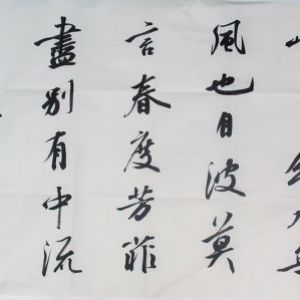 風也自波莫
言春度芳菲
盡別有中流